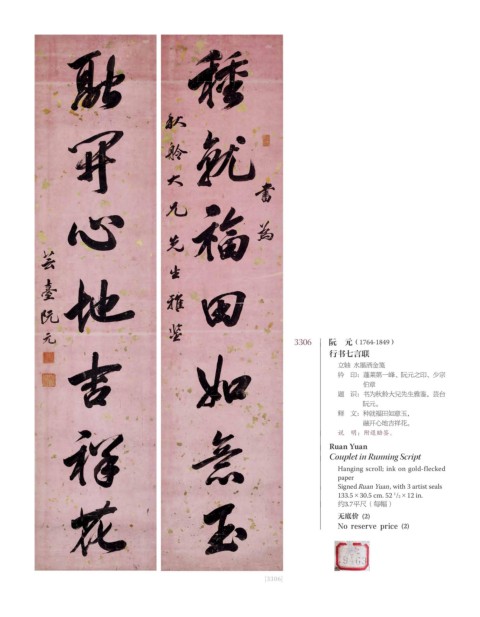 種就福田如意玉
書為
秋舲大兄先生雅鉴
融開心地吉祥花
芸臺阮元
3306 阮 元（1764-1849）
行书七言联
立轴 水墨洒金笺
钤 印：蓬莱第一峰、阮元之印、少宗
伯章
题 识：书为秋舲大兄先生雅鉴。芸台
阮元。
释 文：种就福田如意玉，
融开心地吉祥花。
说 明：
Ruan Yuan
Couplet in Running Script
Hanging scroll; ink on gold-flecked
paper
Signed Ruan Yuan, with 3 artist seals
133.5 × 30.5 cm. 52 1/2 × 12 in.
约3.7平尺（每幅）
无底价 (2)
No reserve price (2)
[3306]